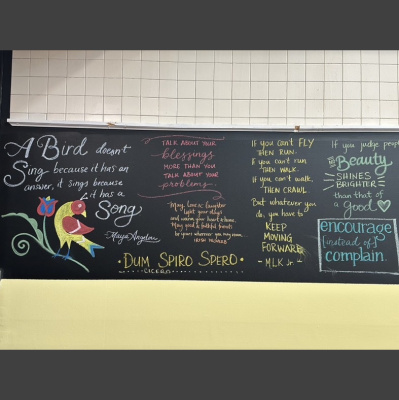 A Bird doesn't
Sing because it has an
answer, it sings because
it has a
Song
- Maya Angelou
TALK ABOUT YOUR
blessings
MORE THAN YOU
TALK ABOUT YOUR
problems.
May love & laughter
light your days
and warm your heart & home.
May good & faithful friends
be yours wherever you may roam.
IRISH
• DUM SPIRO SPERO •
CICERO
If you can't FLY
THEN RUN.
If you can't run
THEN WALK.
If you can't walk,
THEN CRAWL
But whatever you
do, you have to
KEEP
MOVING
FORWARD
- MLK Jr -
If you judge peop
Beauty
SHINES
BRIGHTER
than that of
a Good
encourage
[instead of]
complain.